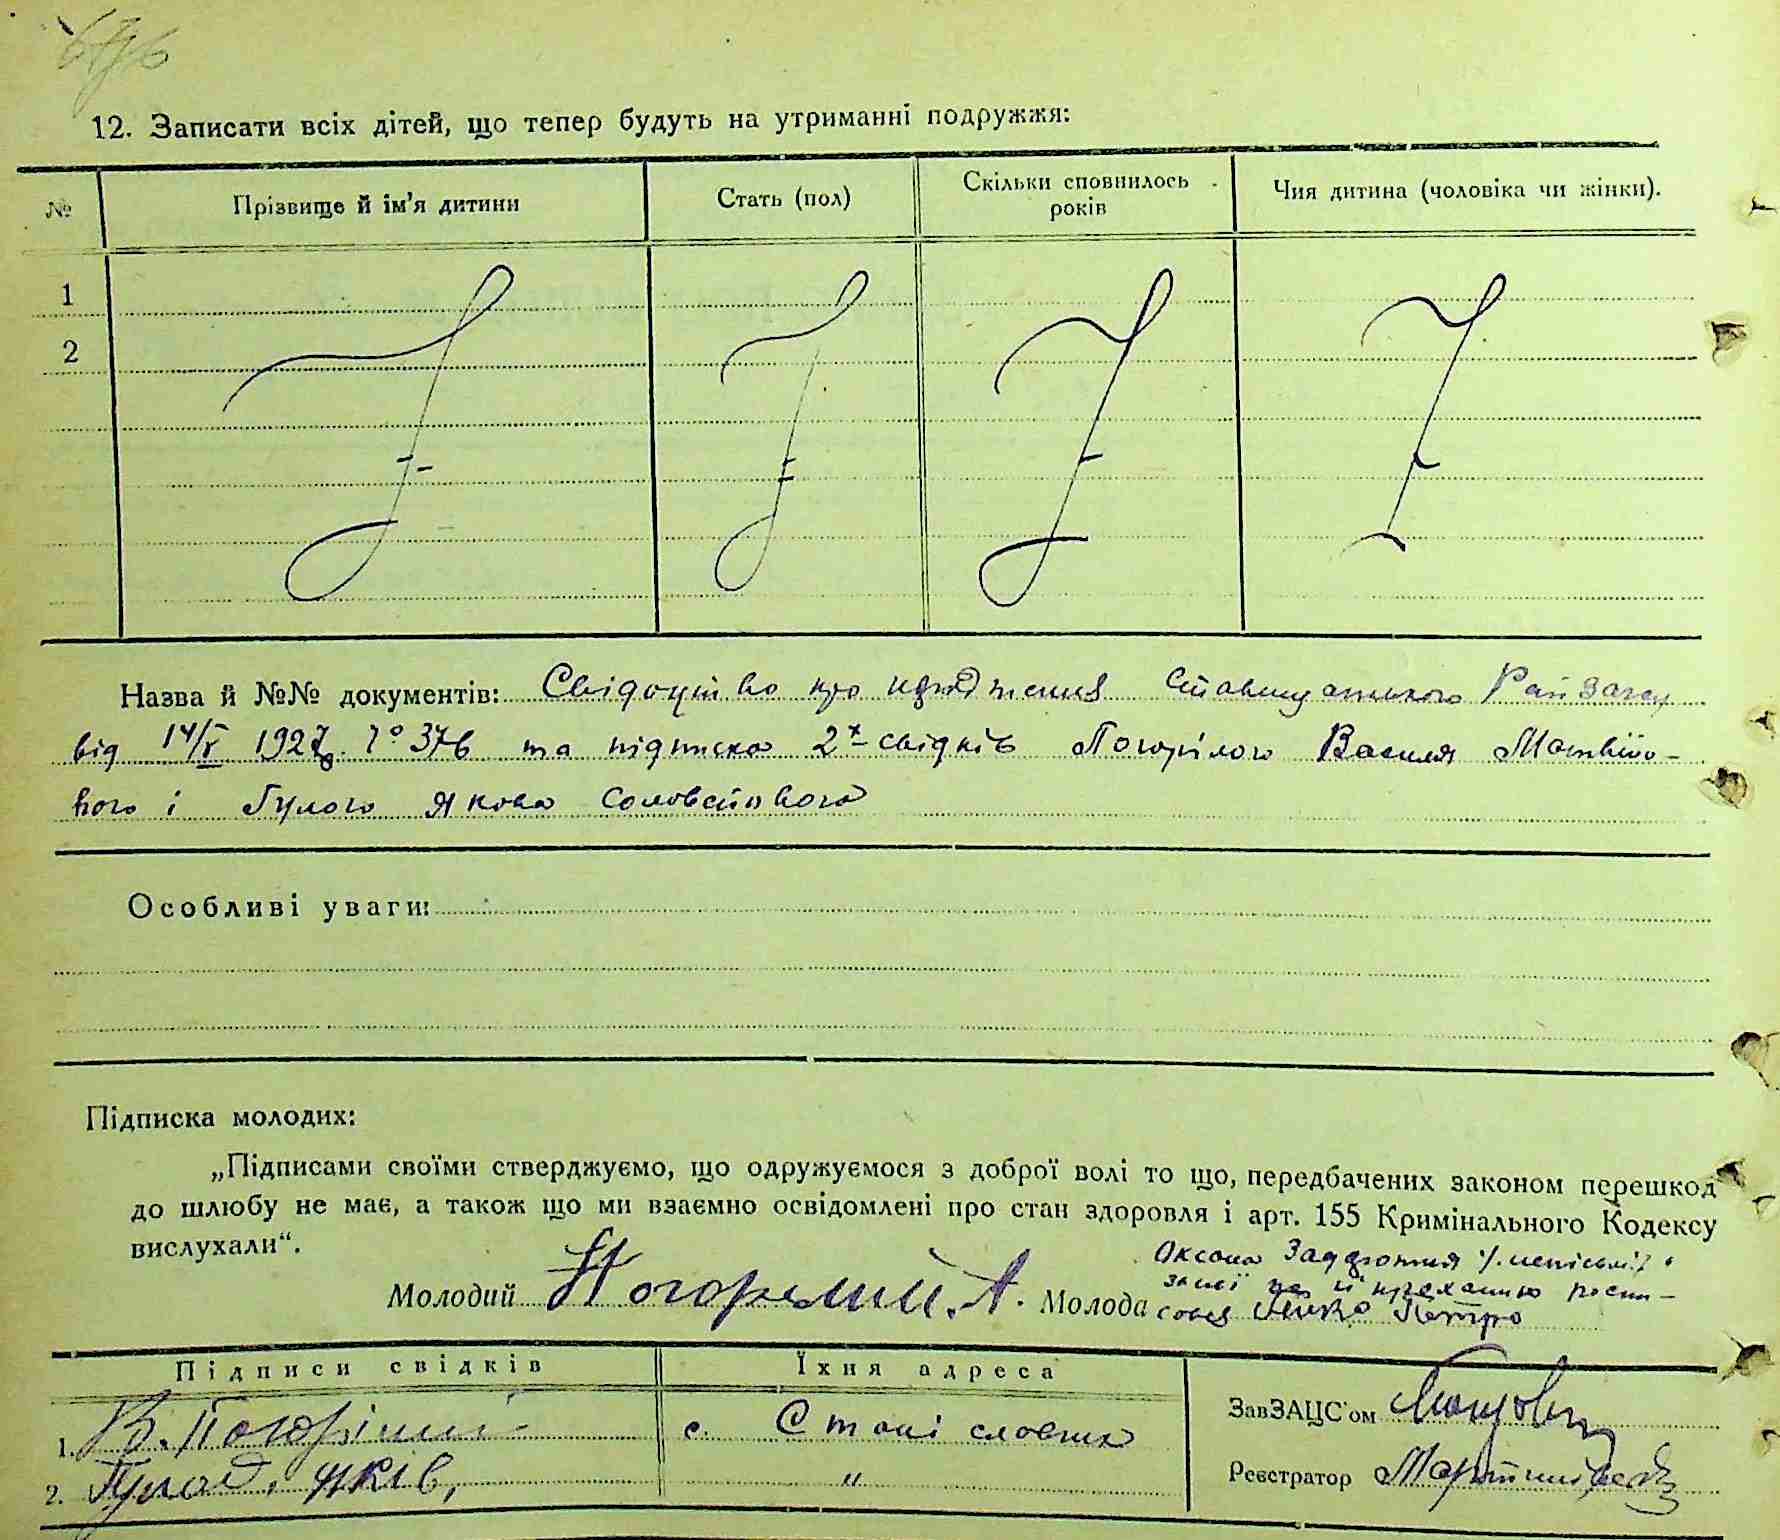 12. Записати всіх дітей, що тепер будуть на утриманні подружжя:
№ Прізвище й ім’я дитини Стать (пол) Скільки сповнилось років Чия дитина (чоловіка чи жінки).
1
2
Назва й №№ документів: Свідоцтво про Рай Загсу
від 14/V 1927 376 та підписка 2х свідків Погорілого Василя Матвійо-
вого і Гулого Якова Соловейового
Особливі уваги:
Підписка молодих:
„Підписами своїми стверджуємо, що одружуємося з доброї волі то що, передбачених законом перешкод
до шлюбу не має, а також що ми взаємно освідомлені про стан здоровля і арт. 155 Кримінального Кодексу
вислухали“.
Оксана
Молодий Погорелий. А. Молода Петро
Підписи свідків Їхня адреса
ЗавЗАЦС’ом
1. В. Погорілий с. Станіславчик
2. Яків, "
Реєстратор